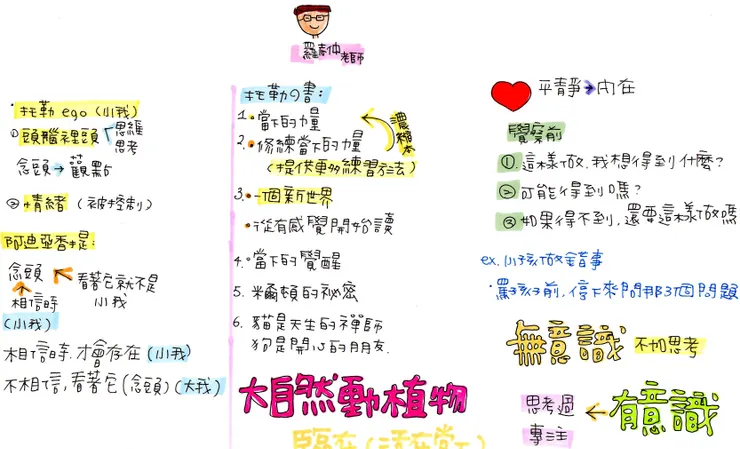 羅孝仲老師
·托勒 ego (小我)
① 頭腦裡頭 思維
思考
念頭→觀點
② 情緒 (被控制)
阿迪亞香提:
念頭 ← 看著它就不是
小我
相信時
(小我)
相信時,才會存在 (小我)
不相信,看著它 (念頭) (大我)
托勒の書:
1. 當下的力量
2. 修練當下的力量
(提供更多練習方法)
濃縮本
3. 一個新世界
·從有感覺開始讀
4. 當下的覺醒
5. 米爾頓的祕密
6. 貓是天生的禪師
狗是開心的朋友.
大自然動植物
臨在 (活在當下)
平靜→內在
覺察前
① 這樣做,我想得到什麼?
② 可能得到嗎?
③ 如果得不到,還要這樣做嗎
ex. 小孩做錯事
·罵孩子前,停下來問那3個問題
無意識 不加思考
思考過 ← 有意識
專注